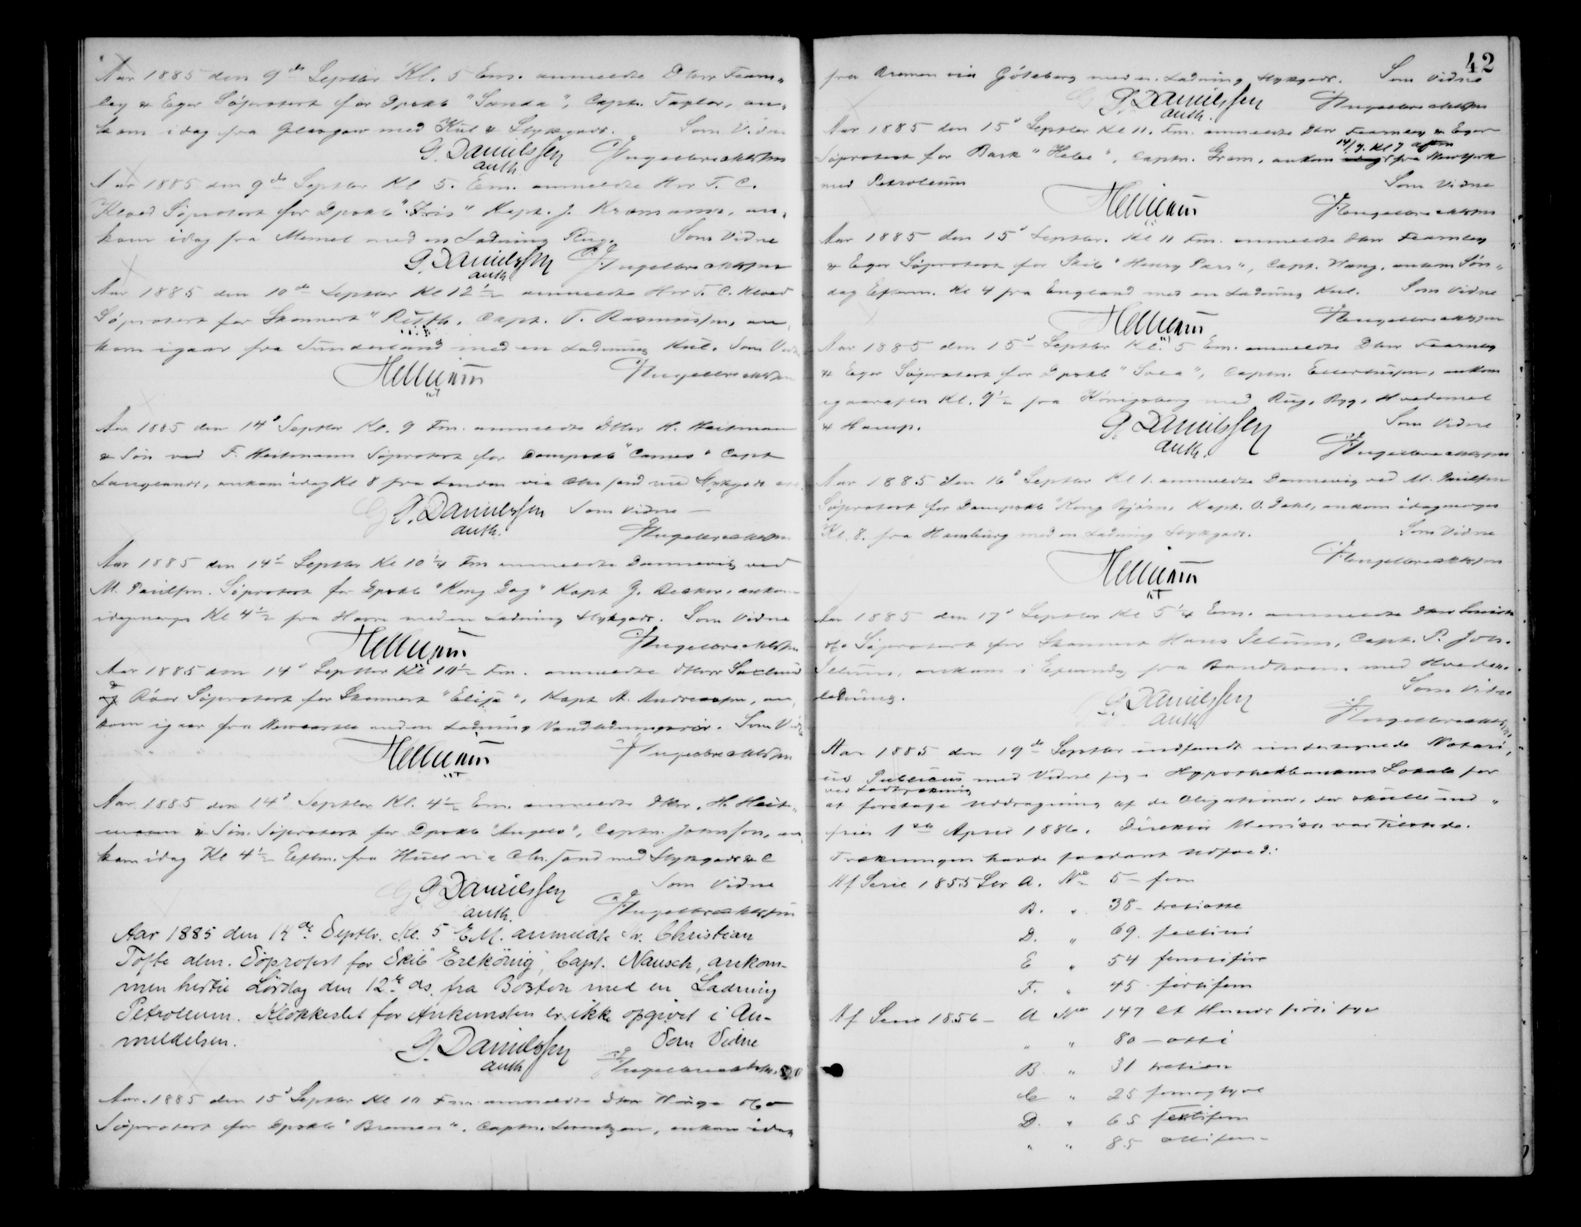 Aar 1885 den 9de Septbr Kl. 5 Em. anmeldte DHrr Fearn„
ley & Eger Søprotest for Dpskb "Sanda", Captn. Taylor, an„
kom idag fra Glasgow med Kul & Stykgods. Som Vidne
G. Daniels̈sen Ingelbrechtsen
auth.
Aar 1885 den 9de Septbr Kl 5. Em. anmeldte Hrr T. C.
Kleed Søprotest for Dpskb "Iris" Kapt. J. an„
kom idag fra Memel med en Ladning Rug. Som Vidne
G. Danielssen Ingelbrechtsen
auth
Aar 1885 den 10de Septbr Kl 12 1/2 anmeldte Hrr T. C. Kleed
Søprotest for Skonnert "Ruth", Capt. T. Rasmussen, an„
kom igaar fra Sunderland med en Ladning Kul. Som Vidne
Ingelbrechtsen
Aar 1885 den 14d Septbr Kl. 9 Fm. anmeldte DHrr H. Heitmann
& Søn ved F. Heitmann Søprotest for Dampskb "Cameo" Capt
Langlands, ankom idag Kl 8 fra London via Chr.sand med Stykgods
G. Danielssen Som Vidne
auth. Ingelbrechtsen
Aar 1885 den 14d Septbr Kl 10 1/4 Fm anmeldte Dannevig ved
M. Paulsen. Søprotest for Dpskb "Kong Dag" Kapt G. Decker, ankom
idagmorges Kl 4 1/2 fra Havre med en Ladning Stykgods. Som Vidne
Ingelbrechtsen
Aar 1885 den 14d Septbr Kl 11 1/2 Fm. anmeldte DHrr
Søprotest for Skonnert "Eliza", Kapt A. Andreassen, an„
kom igaar fra Newcastle med en Ladning Vandledningsrør. Som Vidne
Ingelbrechtsen
Aar 1885 den 14d Septbr Kl. 4 1/2 Em. anmeldte DHrr. H. Heit„
mann & Søn. Søprotest for Dpskb "Angelo", Captn. Johnson, an
kom idag Kl 4 1/2 Eftm. fra Hull via Chr.sand med Stykgods &c
G. Danielssen Som Vidne
auth. Ingelbrechtsen
Aar 1885 den 14de Septbr. Kl. 5 EM. anmeldte Hr. Christian
Tofte alm. Søprotest for Skib Erlkönig, Capt. Nausch, ankom-
men hertil Lørdag den 12te ds. fra Boston med en Ladning
Petroleum. Klokkeslet for Ankomsten er ikke opgivet i An-
meldelsen. G. Danielssen Som Vidne
auth Ingelbrechtsen
Aar 1885 den 15d Septbr Kl 10 Fm anmeldte DHrr Winge & Co
Søprotest for Dpskb "Bremen", Captn. Lorentzen, ankom idag
42
fra Bremen via Göteborg med en Ladning Stykgods. Som Vidne
G. Danielssen Ingelbrechtsen
auth.
Aar 1885 den 15d Septbr Kl 11. Fm. anmeldte DHrr Fearnley & Eger
14/9. Kl 7 aften
Søprotest for Bark "Hebe", Captn. Gram, ankom idag fra Newyork
med Petroleum Som Vidne
Ingelbrechtsen
Aar 1885 den 15d Septbr. Kl 11 Fm. anmeldte DHrr Fearnley
& Eger Søprotest for Skib "Henry ", Capt. Wang, ankom Søn„
dag Efterm. Kl 4 fra England med en Ladning Kul. Som Vidne
Ingelbrechtsen
Aar 1885 den 15d Septbr Kl. 5 Em. anmeldte DHrr Fearnley
& Eger Søprotest for Dpskb "Svea", Captn. Ellertsen, ankom
igaraftes Kl. 9 1/2 fra Königsberg med Rug, Byg, Hvedemel
& Hamp. G. Danielssen Som Vidne
auth. Ingelbrechtsen
Aar 1885 den 16d Septbr Kl 1. anmeldte Dannevig ved M. Paulsen
Søprotest for Dampskb "Kong Bjørn, Kapt. O. Dahl, ankom idagmorges
Kl. 8. fra Hamburg med en Ladning Stykgods. Som Vidne
Ingelbrechtsen
Aar 1885 den 17d Septbr Kl 5 1/4 Em. anmeldte DHrr
Søprotest for Skonnert Hans Capt. P. Joh.
ankom i Eftermiddag fra med Hvede„
ladning. Som Vidne
G. Danielssen
auth Ingelbrechtsen
Aar 1885 den 19de Septbr indfandt undertegnede Notari„
us Publicus med Vidne sig i Hypothekbankens Lokale for
ved Lodtrækning
at foretage Uddragning af de Obligationer, der skulle ind„
fries 1ste April 1886. Direktør var tilstede.
Trækningen havde saadant Udfald:
Af Serie 1855 Ltr A. No 5 – fem
B. „ 38 – tretiotte
D. „ 69. sextini
E „ 54 femtifire
F. „ 45 førtifem
Af Serie 1856 – A No 147 Et Hundr førti syv
„ „ 80 – otti
B „ 31 tretien
C „ 25 femogtyve
D. „ 65 sextifem
„ „ 85 ottifem –